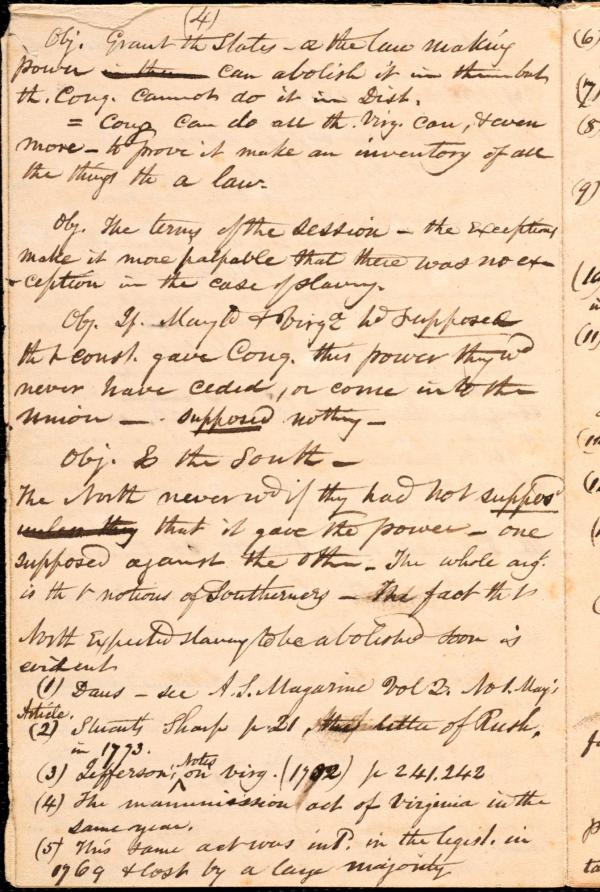 (4)
Obj. Grant th States - or the law making
power can abolish it in them but
th. Cong. cannot do it in Dist.
= Cong can do all th. Virg. can, & even
more - to prove it make an inventory of all
the things th a law.
Obj. The terms of the session - the exceptions
make it more palpable that there was no ex-
-ception in the case of slavery.
Obj. If Mayld & Virga hd supposed
tht const. gave Cong. this power they wd
never have ceded, or come into the
Union - supposed nothing -
Obj. to the South -
The North never wd if they had not suppos'd
unless they that it gave the power - one
supposed against the other - The whole arg.
is tht notions of Southerners - The fact tht
North Expected slavery to be abolished soon is
evident
(1) Daus - see A.S. Magazine Vol 2. No 1. May's
Article.
(2) Stuarts Sharp p 21, letter of Rush,
in 1773.
(3) Jefferson's Notes on virg. (1782) p 241.242
(4) The manumission act of Virginia in the
same year.
(5) This same act was in the legisl. in
1769 & lost by a large majority
(6)
(8)
(9)
(11)